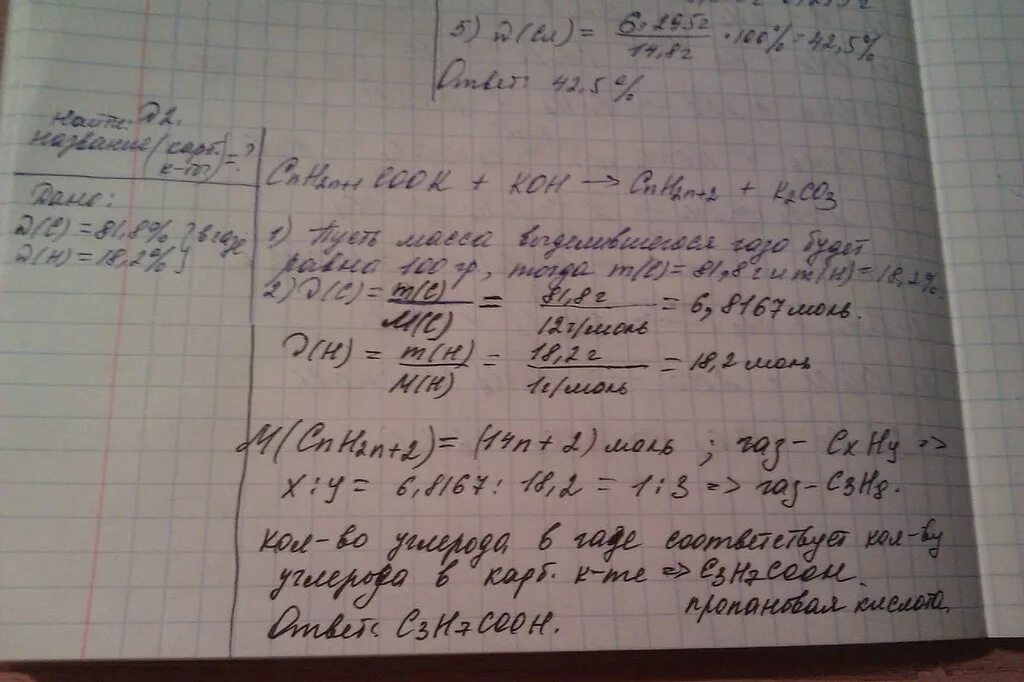 5) W(Cl) = 6,295г / 14,8г · 100% = 42,5%
Ответ: 42,5%
Найти:
название (карб. к-ты) = ?
Дано:
W(C) = 81,8% } в газе
W(H) = 18,2% }
№2.
CnH2n+1 COOK + KOH → CnH2n+2 + K2CO3
1) Пусть масса выделившегося газа будет
равна 100 гр, тогда m(C) = 81,8 г и m(H) = 18,2%.
2) ν(C) = m(C) / M(C) = 81,8 г / 12 г/моль = 6,8167 моль.
ν(H) = m(H) / M(H) = 18,2 г / 1 г/моль = 18,2 моль
M(CnH2n+2) = (14n+2) моль ; газ - CxHy =>
x : y = 6,8167 : 18,2 = 1 : 3 => газ - C3H8.
кол-во углерода в газе соответствует кол-ву
углерода в карб. к-те => C3H7COOH.
пропановая кислота
Ответ: C3H7COOH.